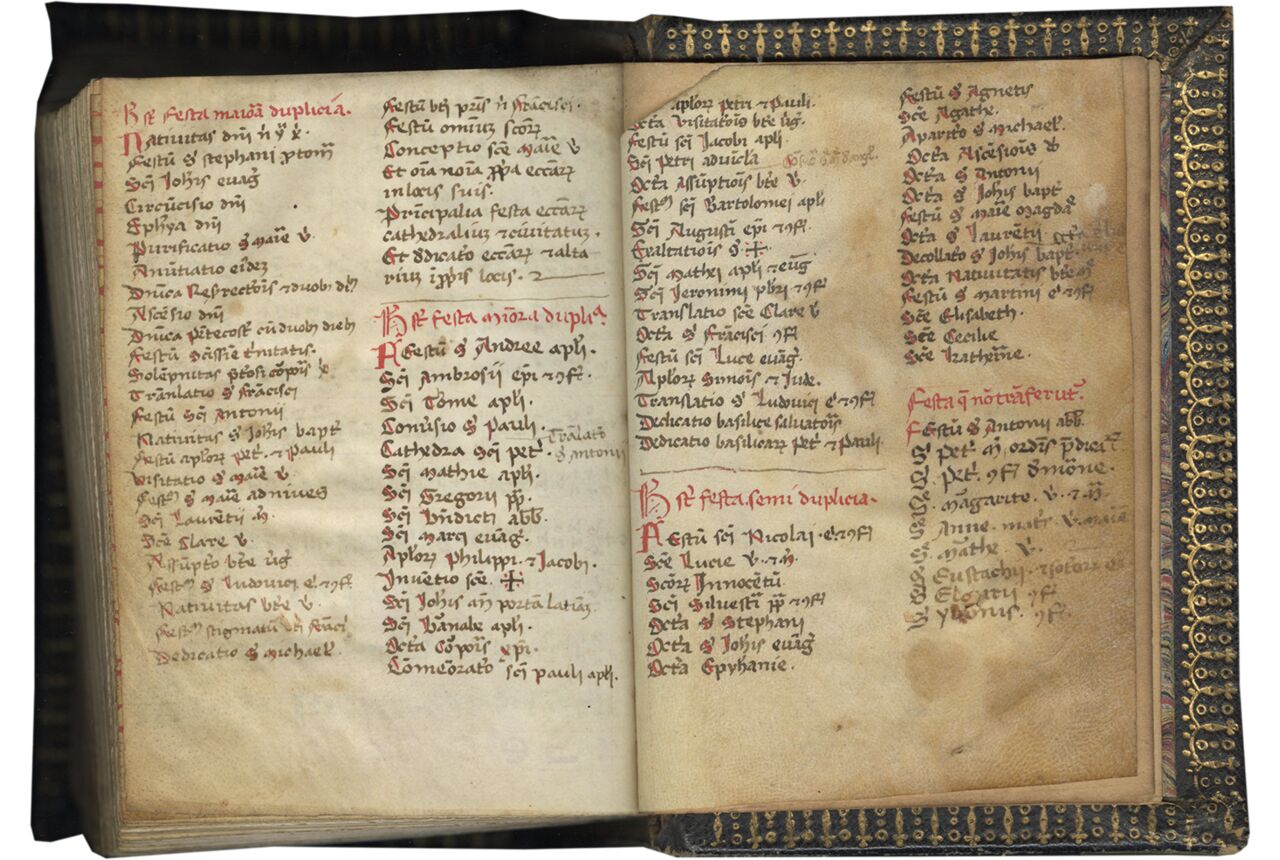 Hec sūt festa maiora duplicia.
Nativitas dnī nr̄i
Festū s̄ stephani ꝓtom̄
Scī Iohīs evāg
Circūcisio dnī
Ephȳa dnī
Purificatio s̄ marie v̄
Anūtiatio eidez
Dnīca Resrectōis ⁊ duob̄ d
Ascēsio dnī
Dnīca pētecost cū duob̄ dieb
Festū scīssime t̄nitatis.
Solēpnitas corpois
Trānlatio s̄ frācisci
Festū scī Antonii
Nativitas s̄ Iohīs bapt
Festū aplorꝝ pet ⁊ Pauli
Visitatio s̄ marie v̄
Fest s̄ marie ad nives
Scī Laurētii m̄
Scē Clare v̄
Assūptō btē vg
Fest s̄ Ludovici ē ⁊ ꝯf
Nativitas btē v̄
Fest stigmatū btī frācī
Dedicatio s̄ michael
Festū btī pris n̄ francisci.
Festū omniuz scōrꝝ
Conceptio scē marie v̄
Et oīa noīa ꝓpa eccārꝝ
in locis suis.
Principalia festa eccārꝝ
cathedraliuz ⁊ civitatuz.
Et dedicatō eccārꝝ ⁊ alta
riuz ip̄is locis.
Hec sūt festa minora duplia
Festū s̄ Andree apli.
Scī Ambrosii epi ⁊ ꝯf.
Scī Tome apli.
Convsio s̄ Pauli.
Cathedra scī pet.
Translatō s̄ Antonii
Scī mathie apli.
Scī Gregorii pp̄.
Scī bn̄dicti abb̄.
Scī marci evag.
Aplorꝝ Philippi. ⁊ Iacobi.
Inventio scē. ✠
Scī Iohīs an̄ portam latinaz
Scī Barnabe apli.
Octa corpis xpi.
Comēoratō scī pauli apli.
aplorꝝ Petri ⁊ Pauli.
Octa visitatōis btē vg.
Festū scī Iacobi apli
Scī Petri ad vīcla
Octa Assūptiōis btē v̄.
Fest scī Bartolomei apli
Scī Augustī epi ⁊ ꝯf.
Exaltatiōis s̄ ✠
Scī mathei apli ⁊ evg
Scī Ieronimi pbri ⁊ ꝯf
Translatio scē Clare v̄
Octa s̄ frācisci ꝯf
Festū scī Luce evāg.
Aplorꝝ Simōis ⁊ Iude.
Translatio s̄ Ludovici ē ⁊ ꝯf
Dedicatio basilice salvatoris
Dedicatio basilicarꝝ pet ⁊ Pauli
Hec sūt festa semi duplicia.
Festū scī Nicolai. ē ⁊ ꝯf
Scē Lucie v̄ ⁊ m̄.
Scōrꝝ Innocētū
Scī Silvestri pp̄ ⁊ ꝯf
Octa s̄ Stephani
Octa s̄ Iohīs evāg
Octa Epyhanie.
Festū s̄ Agnetis
Scē Agathe.
Apparitō s̄ michael.
Octa Ascēsiōis
Octa s̄ Antonii
Octa s̄ Iohīs bapt
Festū s̄ marie magda
Octa s̄ Laurētii
Decollatō s̄ Iohīs bapt
Octa Nativitatis btē
Festū s̄ martini ē ⁊ ꝯf
Scē Elisabeth.
Scē Cecilie
Scē Katherine.
Festa q̄ nō trāferūt
Festū s̄ Antonii abb̄.
S. Pet m̄ ordīs p̄dic
S. Pet. ꝯf
S. margarite. v̄. ⁊ m̄.
S. Anne. matris v̄. marie
S. mathe v̄.
S. Eustachii. ⁊ sociorꝝ
S. Elzarii ꝯf
S. yvonis. ꝯf